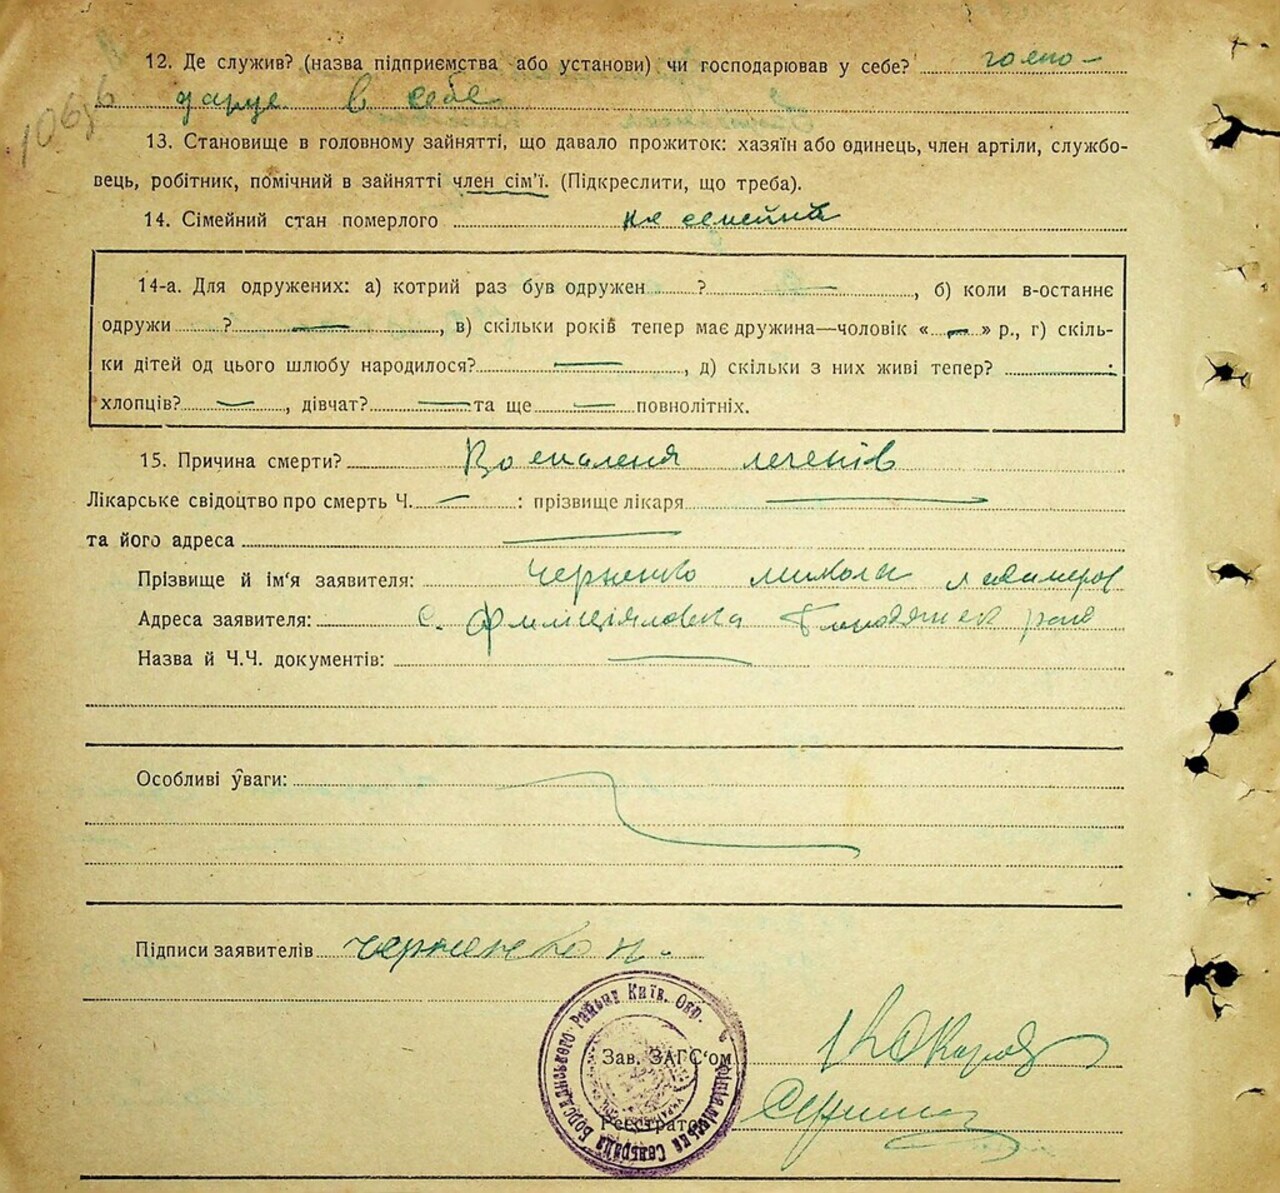 12. Де служив? (назва підприємства або установи) чи господарював у себе? госпо-
дарує в себе
1066
13. Становище в головному зайнятті, що давало прожиток: хазяїн або одинець, член артіли, службо-
вець, робітник, помічний в зайнятті член сім'ї. (Підкреслити, що треба).
14. Сімейний стан померлого не семейний
14-а. Для одружених: а) котрий раз був одружен ? —, б) коли в-останнє
одружи ? —, в) скільки років тепер має дружина—чоловік «—» р., г) скіль-
ки дітей од цього шлюбу народилося? —, д) скільки з них живі тепер? —:
хлопців? —, дівчат? — та ще — повнолітніх.
15. Причина смерти? Воспаленя легенів
Лікарське свідоцтво про смерть Ч. — : прізвище лікаря —
та його адреса —
Прізвище й ім'я заявителя: Черненко Микола
Адреса заявителя: с. Филиціяловка район
Назва й Ч.Ч. документів: —
Особливі уваги:
Підписи заявителів Черненко М.
Зав. ЗАГС'ом
Реєстратор
Сельрада Бородянського Району Київ. Окр.